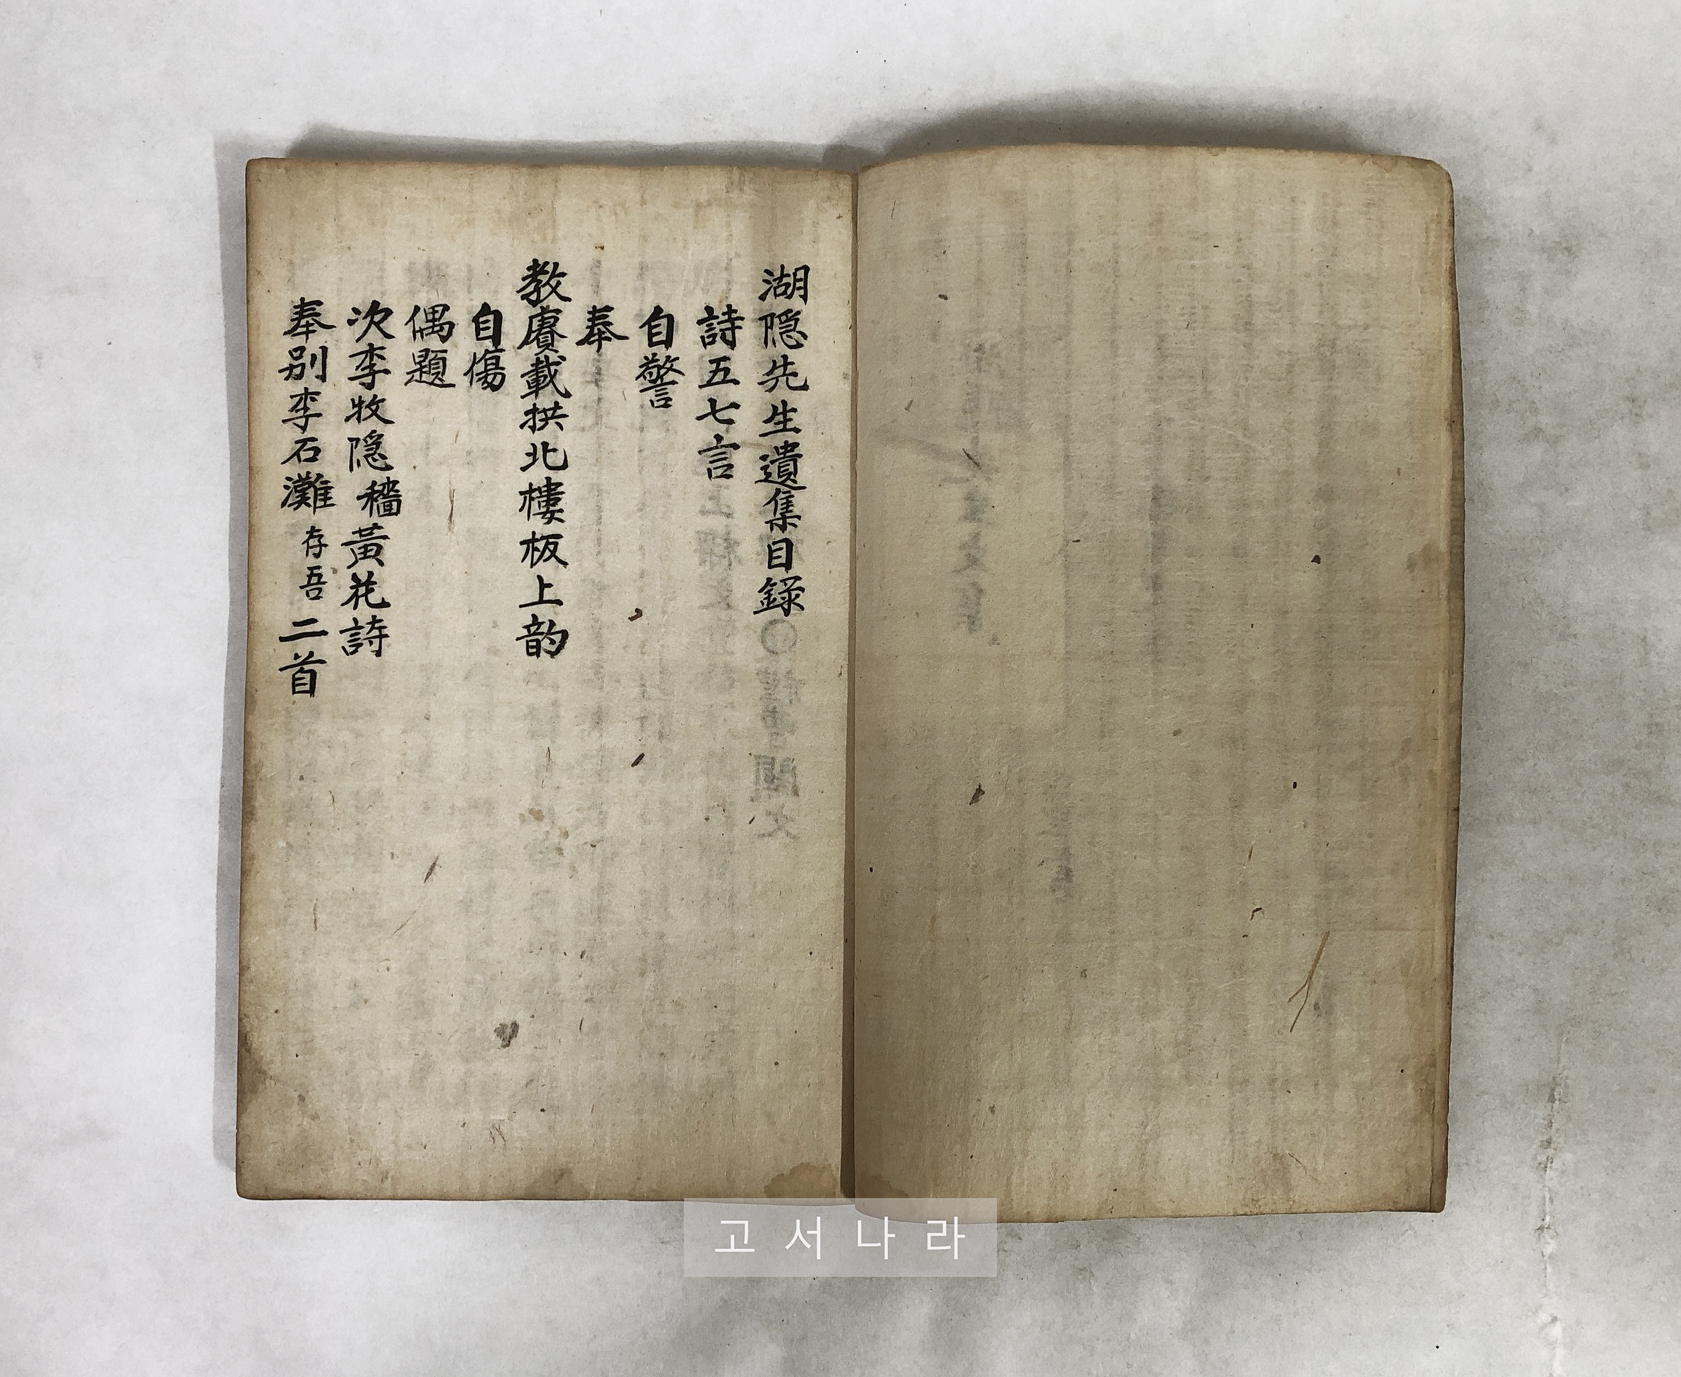 湖隐先生遺集目錄
詩五七言
自警
奉
教賡載拱北樓板上韵
自傷
偶題
次李牧隐穡黃花詩
奉別李石灘存吾二首
고서나라